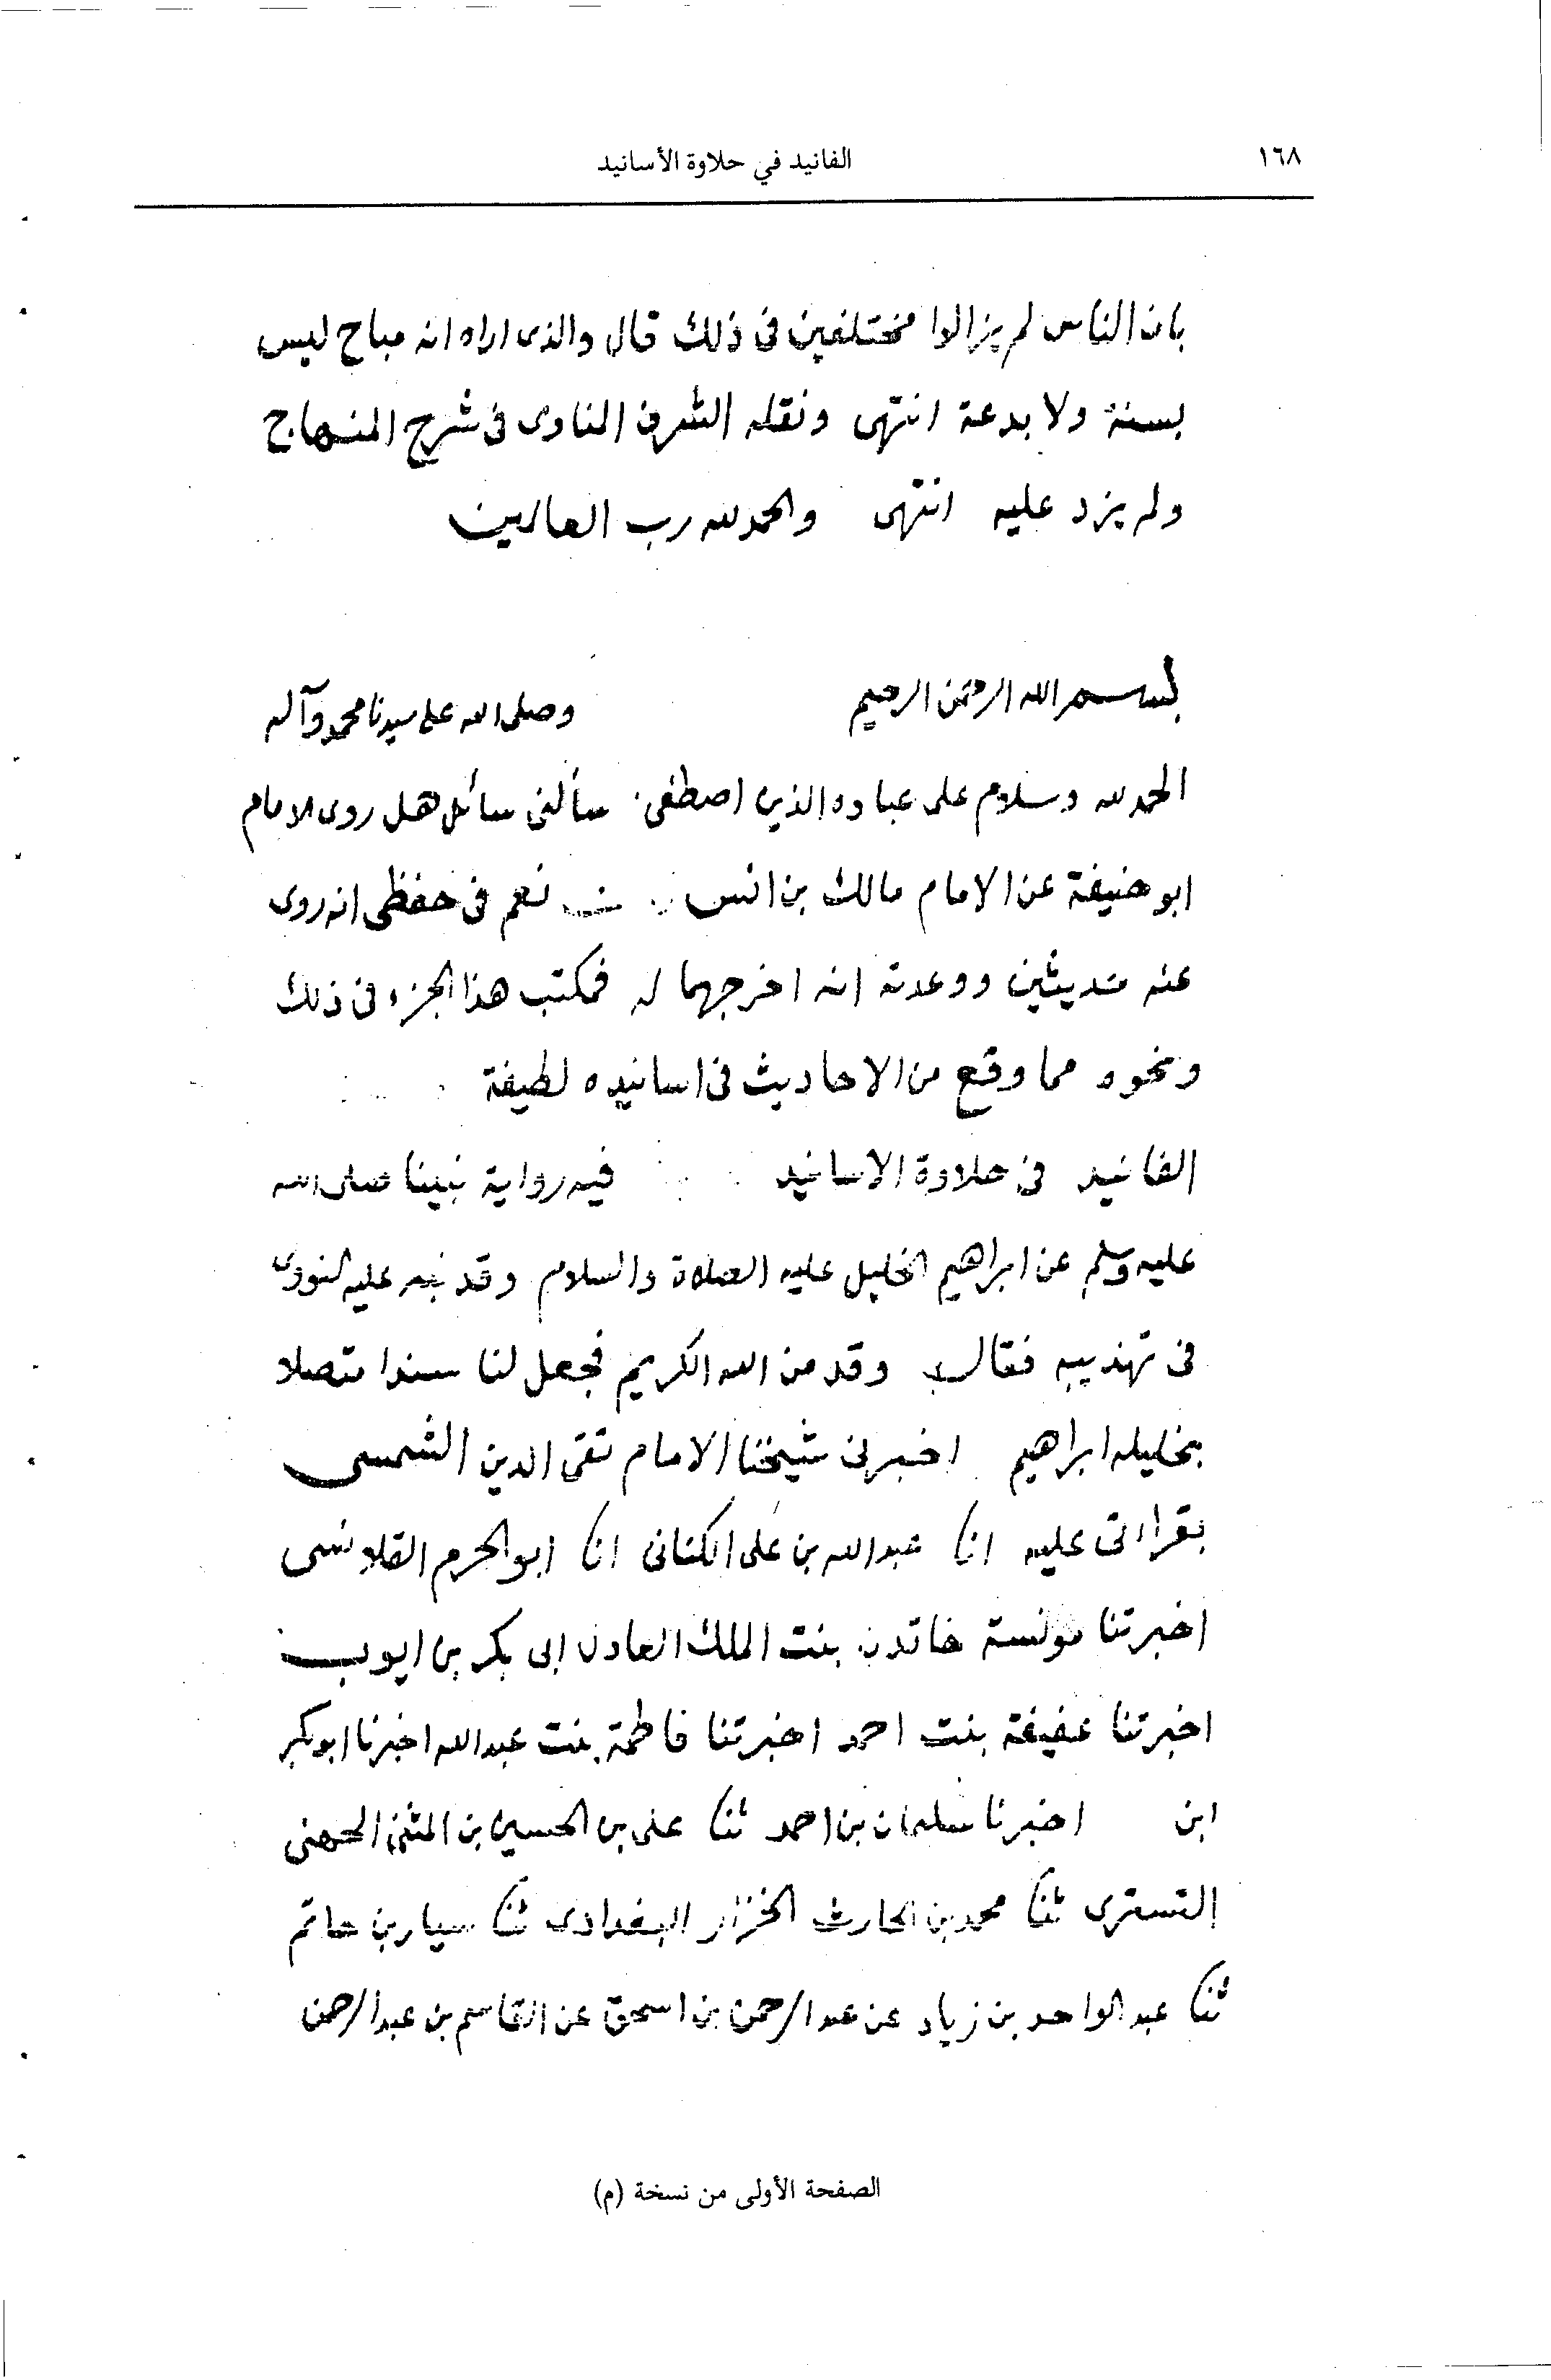 ١٦٨
الفانيد في حلاوة الأسانيد
بان الناس لم يزالوا مختلفين فى ذلك قال والذى اراه انه مباح ليس
بسنة ولا بدعة انتهى ونقله الشرف المناوى فى شرح المنهاج
ولم يزد عليه انتهى والحمد لله رب العالمين
بسم الله الرحمن الرحيم وصلى الله على سيدنا محمد وآله
الحمد لله وسلام على عباده الذين اصطفى سألنى سائل هل روى الامام
ابو حنيفة عن الامام مالك بن انس نعم فى حفظى انه روى
عنه حديثين ووعدته انه اخرجهما له فكتب هذا الجزء فى ذلك
ونحوه مما وقع من الاحاديث فى اسانيده لطيفة
الفانيد فى حلاوة الاسانيد فيه رواية نبينا صلى الله
عليه وسلم عن ابراهيم الخليل عليه الصلاة والسلام وقد نبه عليه النووى
فى تهذيبه فقال وقد من الله الكريم فجعل لنا سندا متصلا
بخليله ابراهيم اخبرنى شيخنا الامام تقى الدين الشمسى
بقراءتى عليه انا عبد الله بن على الكنانى انا ابو الحرم القلانسى
اخبرتنا مونسة خاتون بنت الملك العادل ابى بكر بن ايوب
اخبرتنا عفيفة بنت احمد اخبرتنا فاطمة بنت عبد الله اخبرنا ابو بكر
ابن اخبرنا سليمان بن احمد ثنا على بن الحسين بن المثنى الجهنى
التسترى ثنا محمد بن الحارث الخزاز البغدادى ثنا سيار بن حاتم
ثنا عبد الواحد بن زياد عن عبد الرحمن بن اسحق عن القاسم بن عبد الرحمن
الصفحة الأولى من نسخة (م)